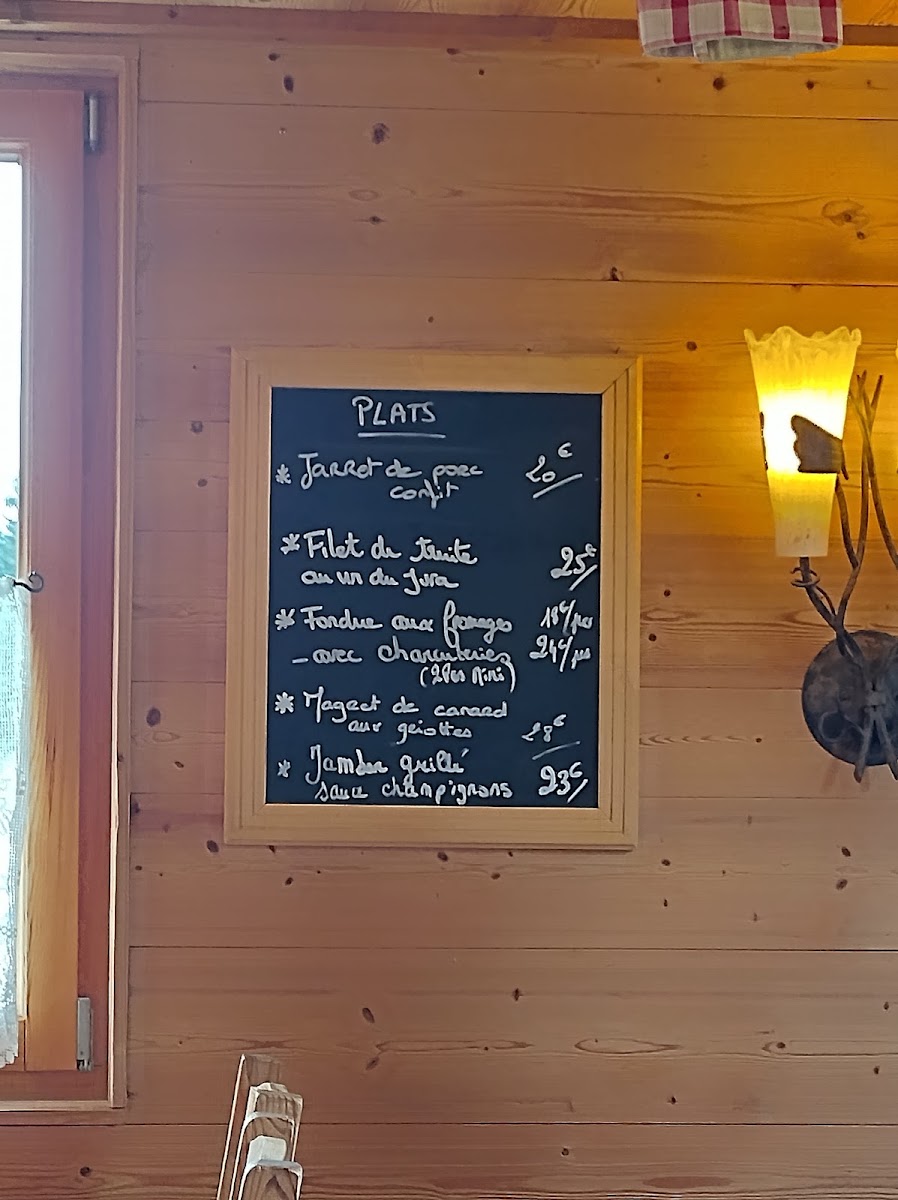 PLATS
* Jarret de porc 20€
confit
* Filet de truite 25€
au vin du Jura
* Fondue aux fromages 18€/pers
- avec charcuteries 24€/pers
(2Pers Mini)
* Magret de canard
aux griottes 28€
* Jambon grillé
sauce champignons 23€